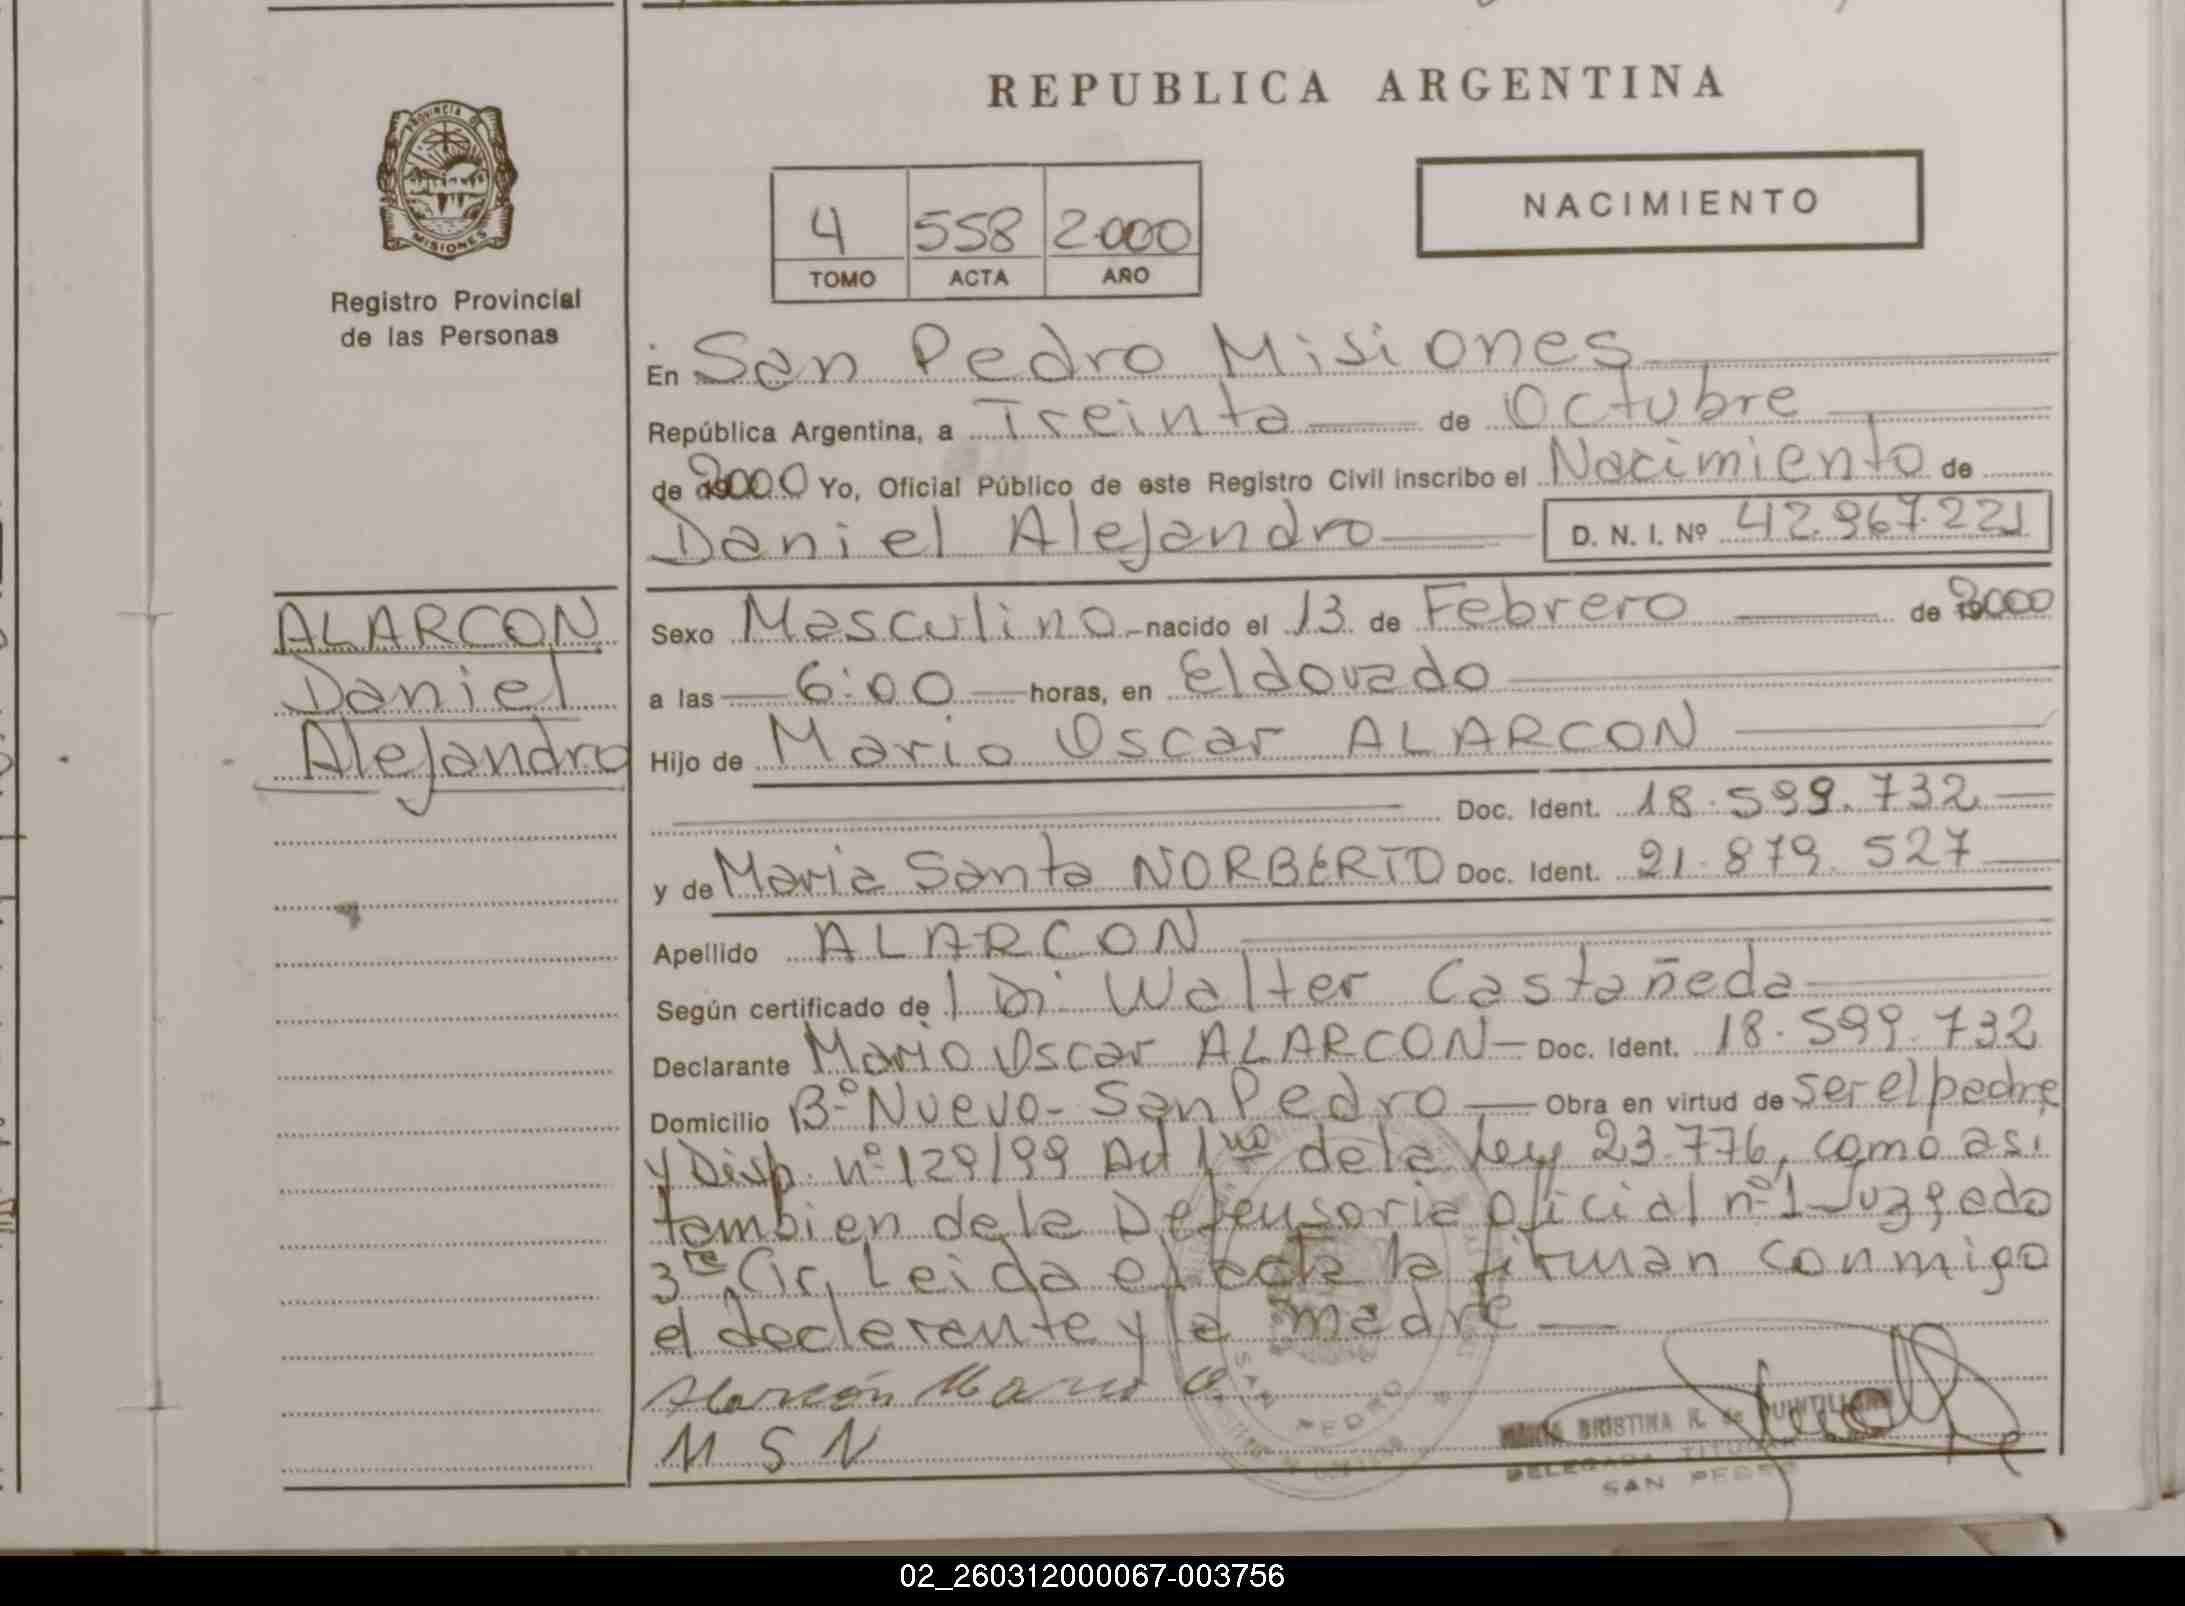 REPUBLICA ARGENTINA
PROVINCIA DE
MISIONES
Registro Provincial
de las Personas
NACIMIENTO
4 558 2.000
TOMO ACTA AÑO
En San Pedro Misiones
República Argentina, a Treinta de Octubre
de 2000 Yo, Oficial Público de este Registro Civil inscribo el Nacimiento de
Daniel Alejandro D. N. I. Nº 42.967.221
ALARCON
Daniel
Alejandro
Sexo Masculino nacido el 13 de Febrero de 2000
a las 6:00 horas, en Eldorado
Hijo de Mario Oscar ALARCON
Doc. Ident. 18.599.732
y de Maria Santa NORBERTO Doc. Ident. 21.879.527
Apellido ALARCON
Según certificado de Walter Castañeda
Declarante Mario Oscar ALARCON Doc. Ident. 18.599.732
Domicilio Bº Nuevo - San Pedro Obra en virtud de ser el padre
y Disp. nº 129/99 Art 1ro de la Ley 23.776, como asi
tambien de la Defensoria Oficial nº 1 Juzgado
3ra Cir. Leida el acta la firman conmigo
el declarante y la madre
Alarcón Mario O.
M S N
SAN PEDRO
BRISTINA R. de QUINTILIANI
DELEGADA TITULAR
SAN PEDRO
02_260312000067-003756